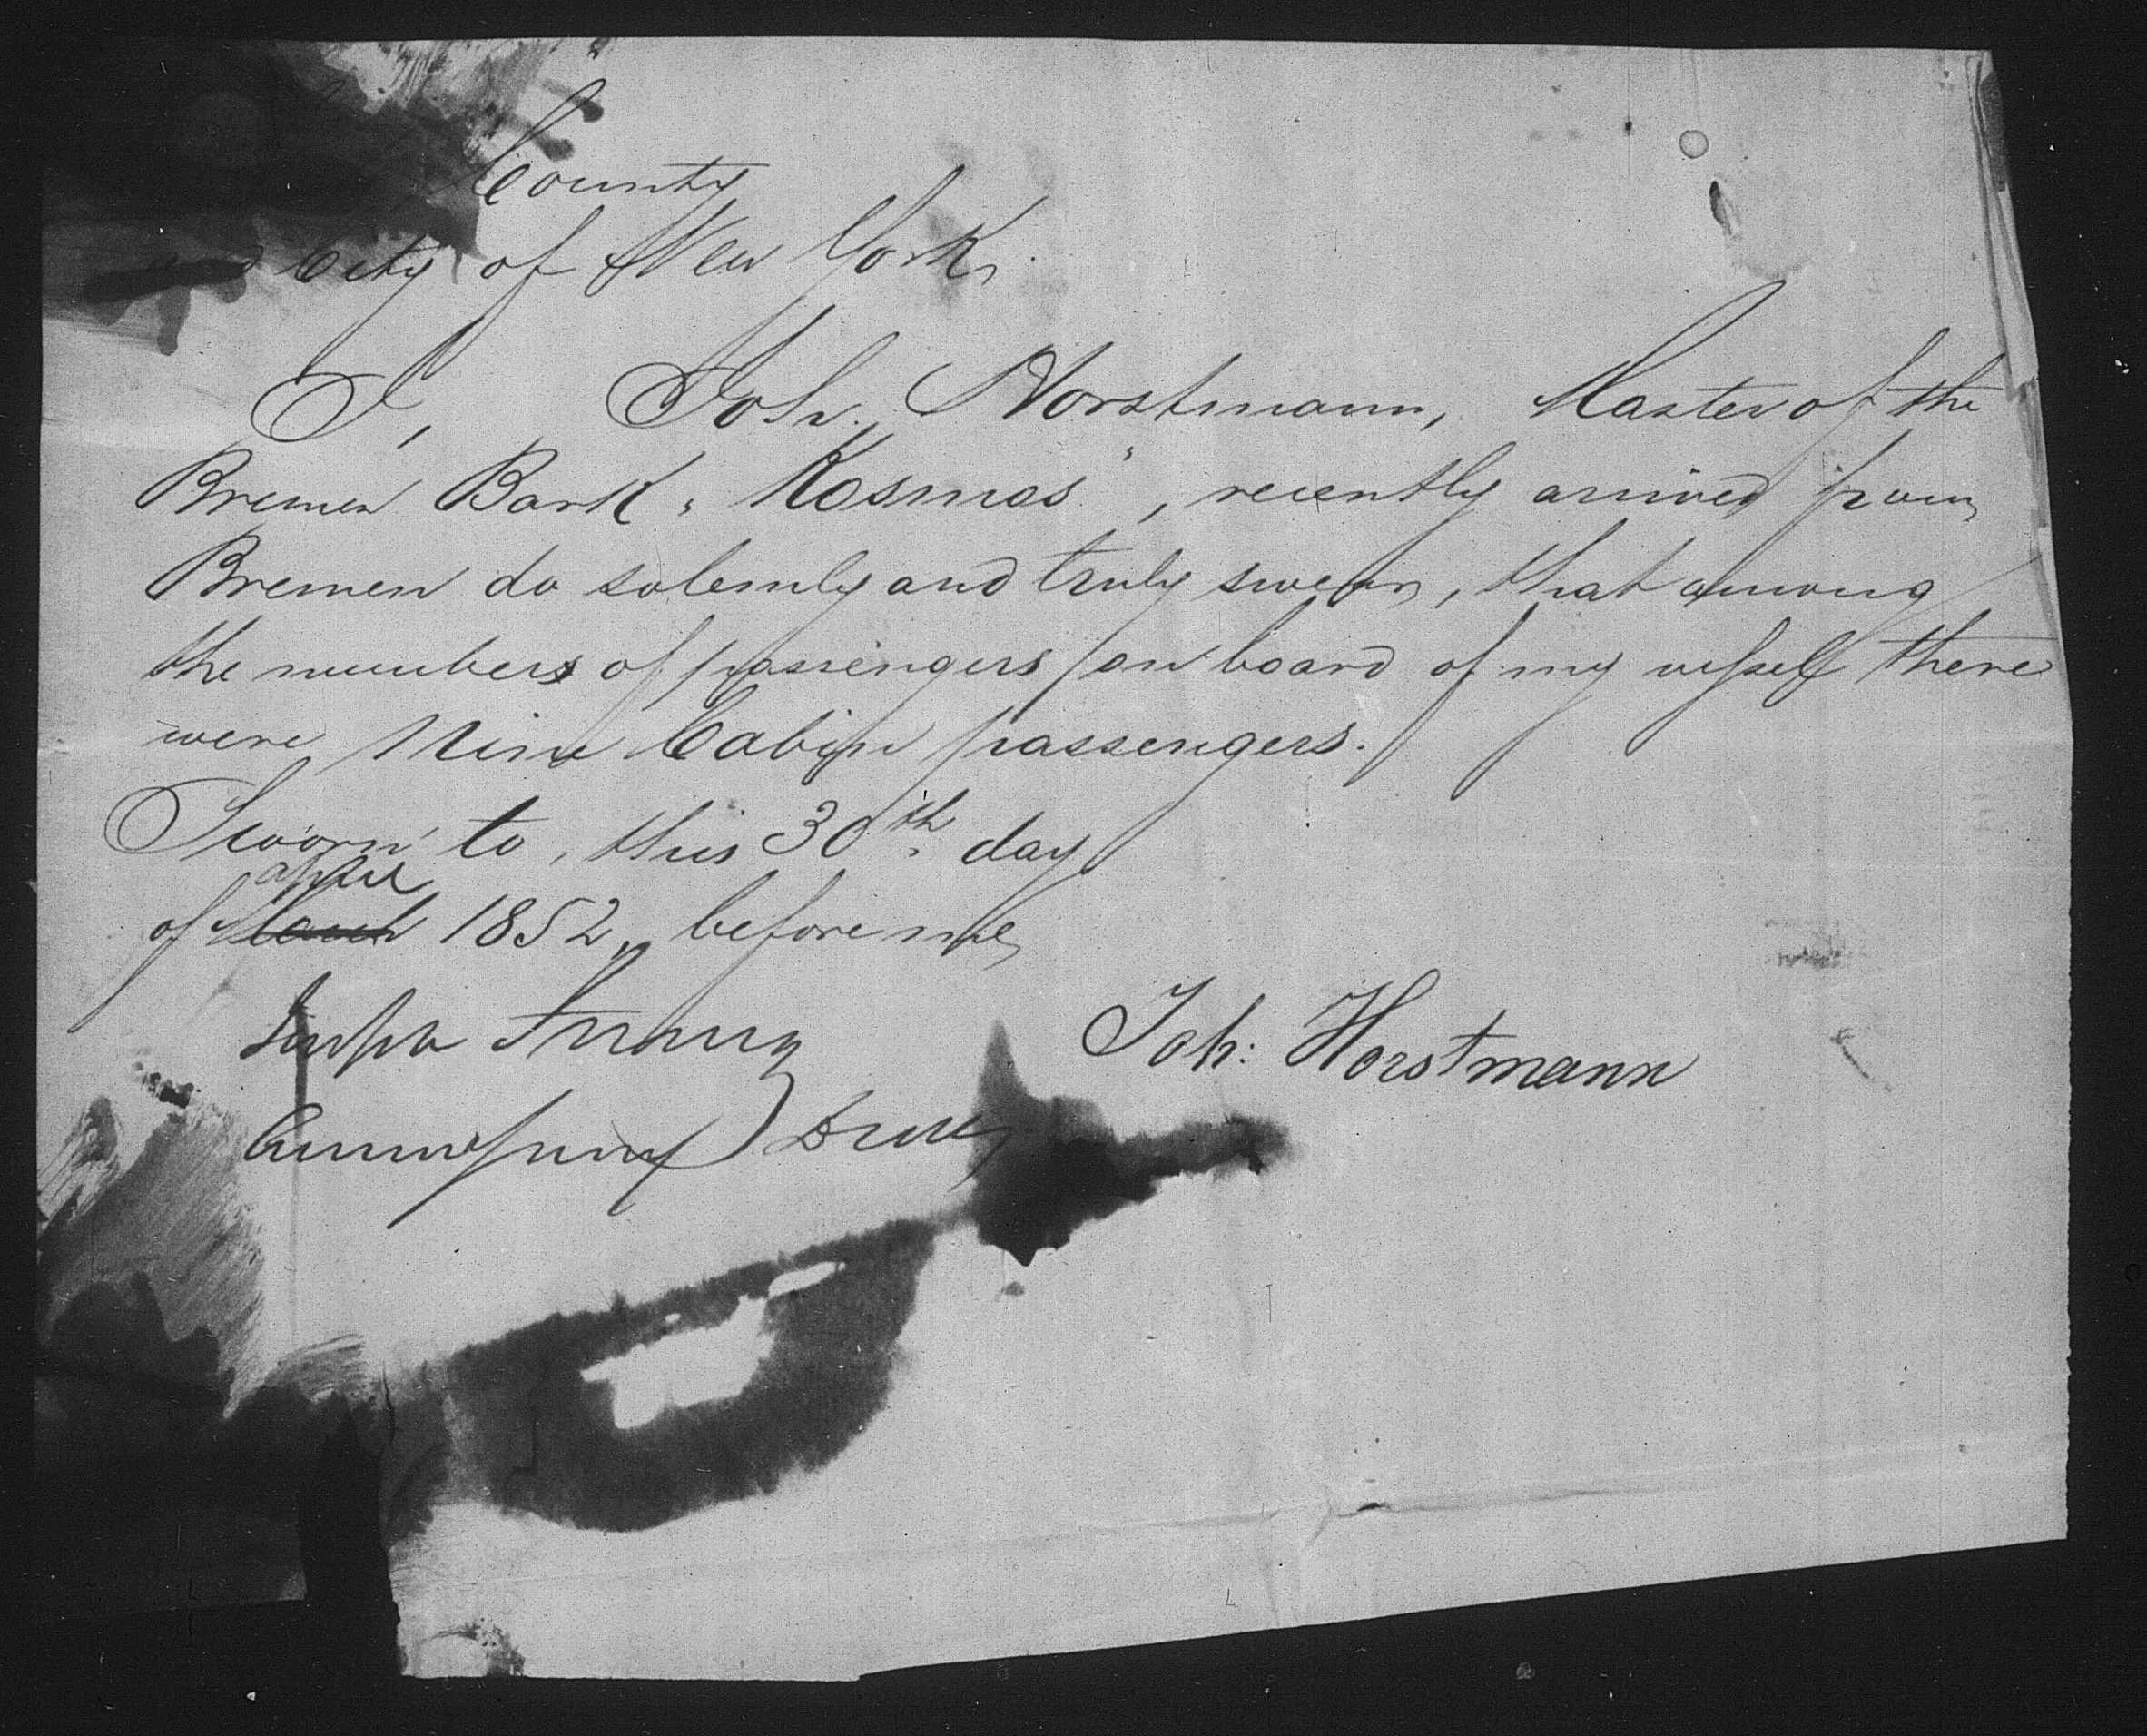 County
City of New York.
I, Joh. Horstmann, Master of the
Bremen Bark "Kosmos", recently arrived from
Bremen do solemly and truly swear, that among
the numbers of passengers on board of my vessel there
were Nine Cabin passengers.
Sworn to, this 30th day
april
of March 1852, before me,
Joseph Strong
Joh: Horstmann